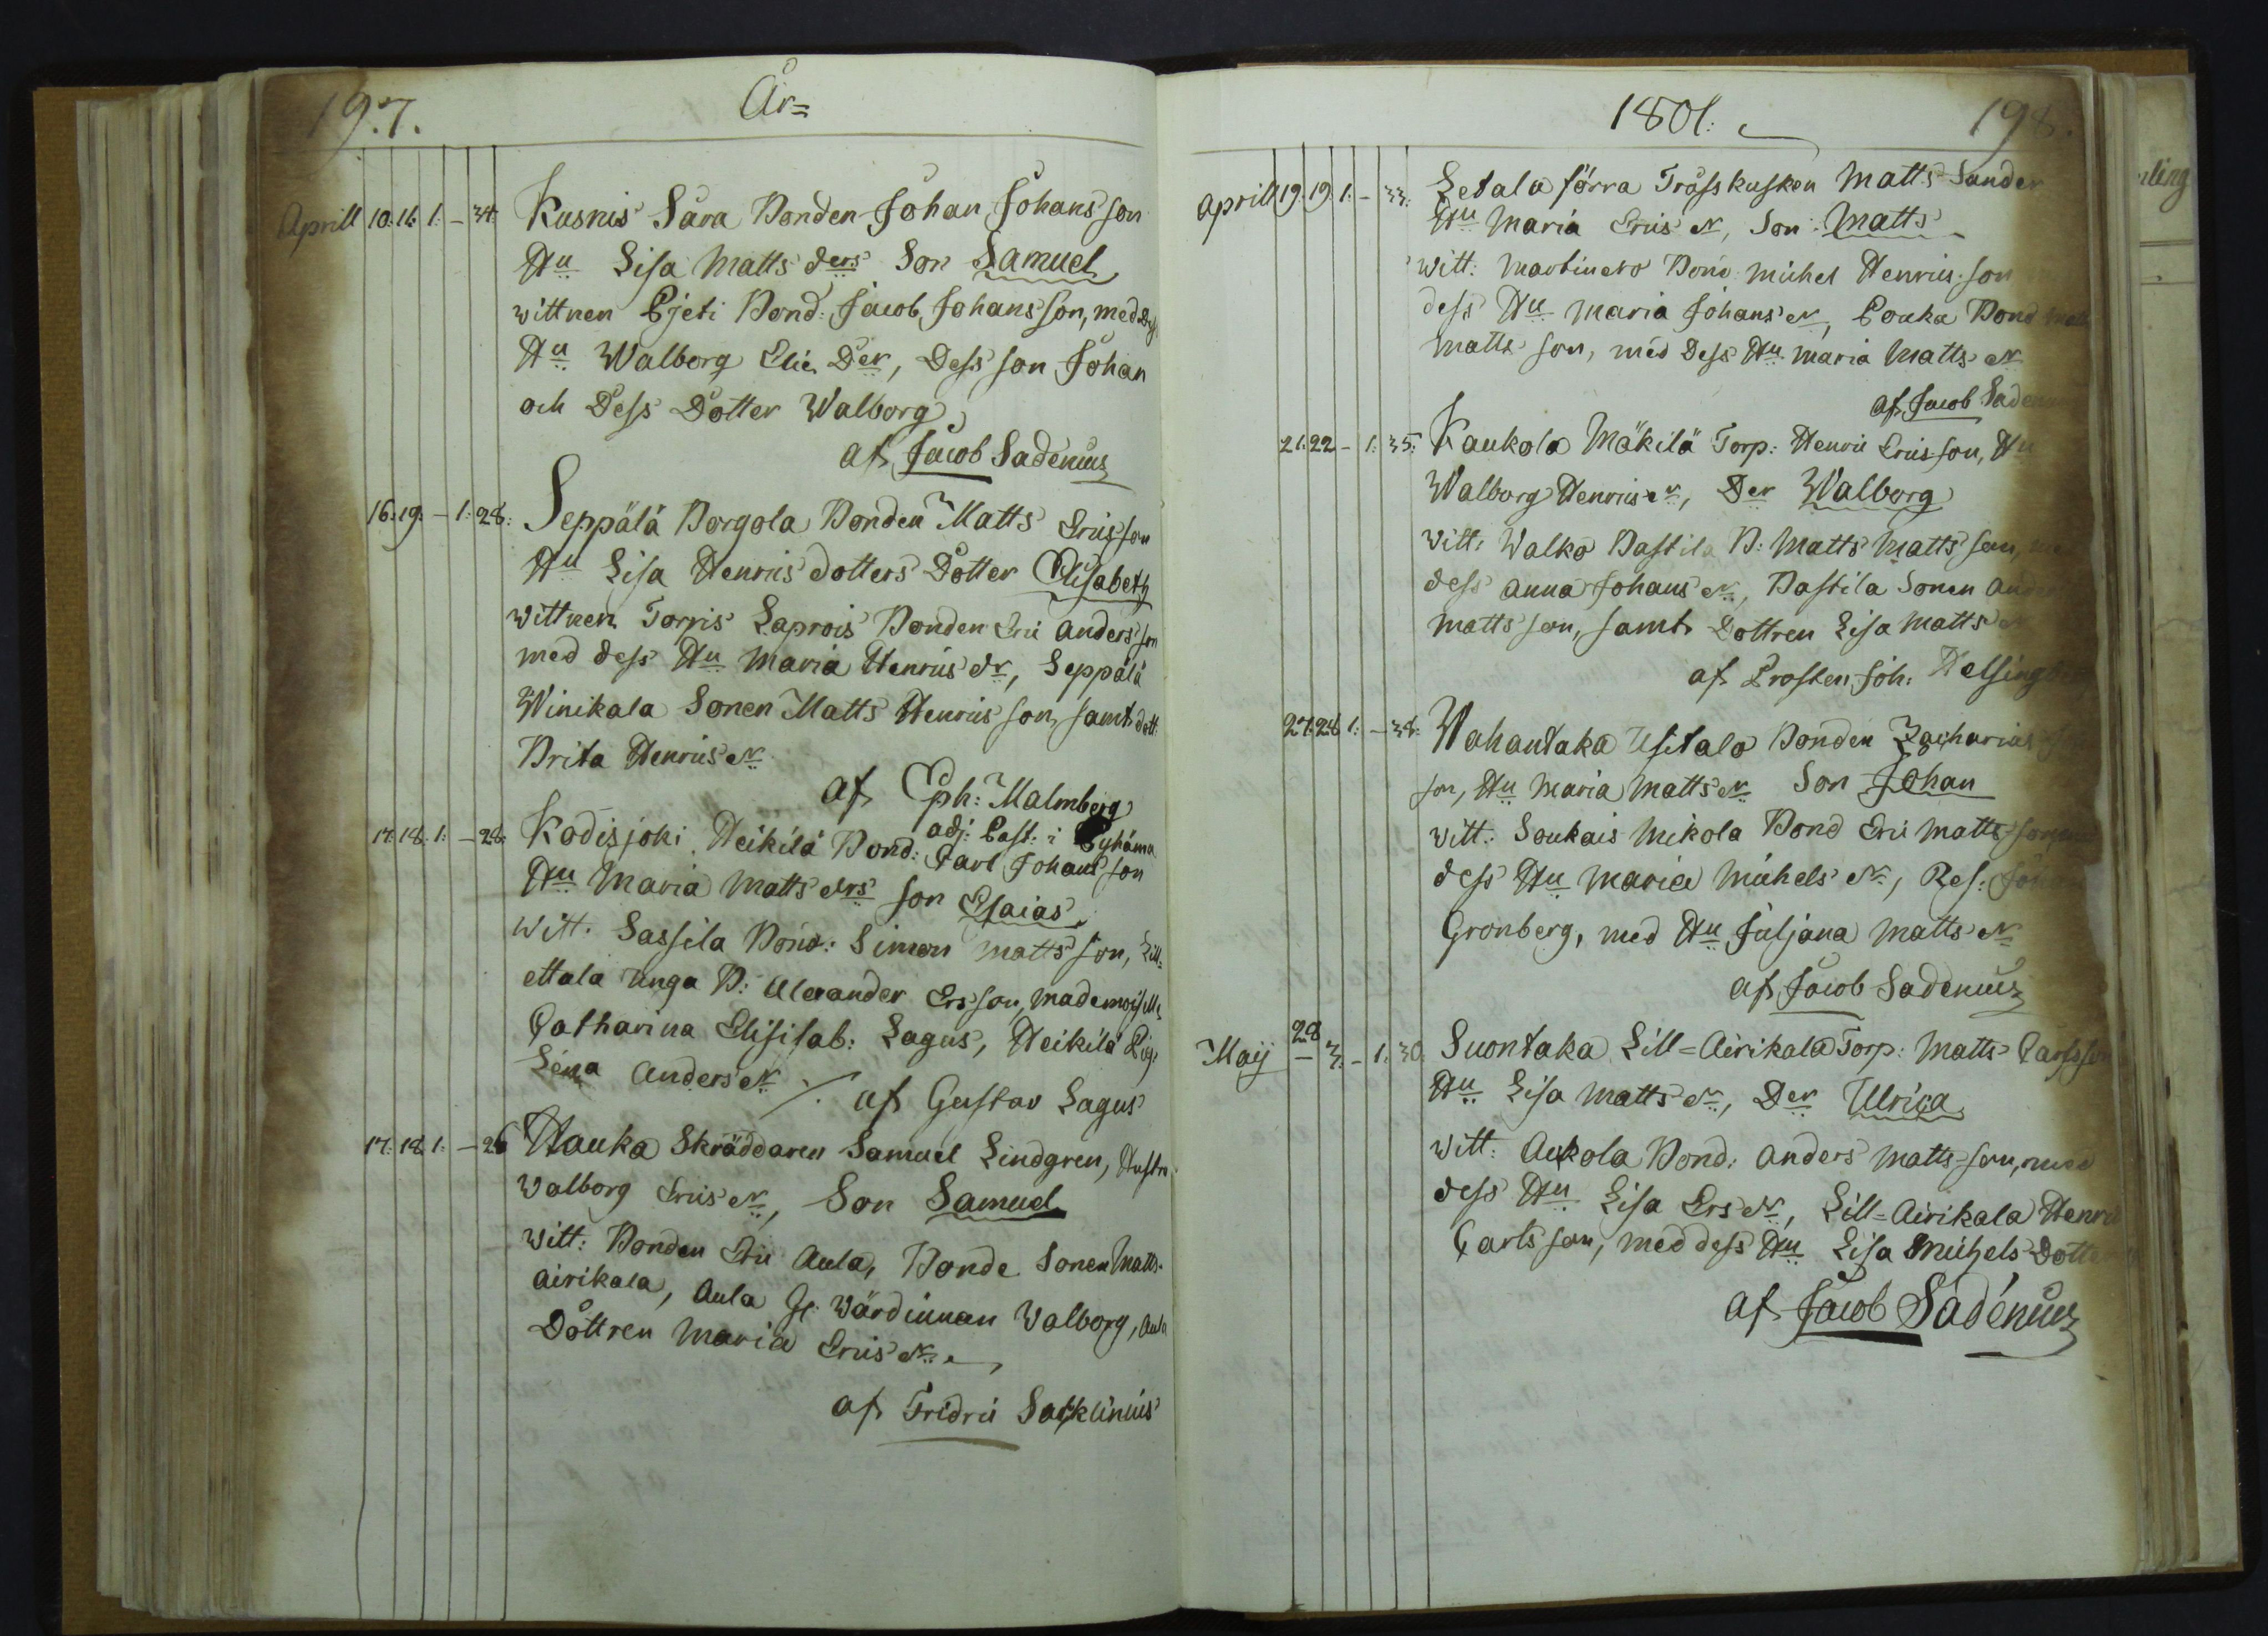 197.
År=
Aprill 10. 16. 1. - 34. Kusnis Sara Bonden Johan Johans son
Hu Lisa Matts ders Son Samuel
wittnen Pjeti Bond: Jacob Johans son, med Dess
Hu Walborg Elie Der, Dess son Johan
och Dess Dotter Walborg
af Jacob Sadenius
16. 19. - 1. 28. Seppälä Borgola Bonden Matts Erics son
Hu Lisa Henrics dotters Dotter Elisabeth
wittnen Torris Laprois Bonden Eric Anders son
med dess Hu Maria Henrics dr, Seppälä
Winikala Sonen Matts Henrics son, samt dott:
Brita Henrics dr
af Eph: Malmberg
adj: Past: i Pyhäma
17. 18. 1. - 28. Kodisjoki Heikilä Bond: Carl Johans son
Hu Maria Matts drs son Esaias
Witt. Sassila Bond: Simon Matts son, Lill=
ettala unga B: Alexander Ers son, Mademoiselle
Catharina Elisisab: Lagus, Heikilä Pig.
Lena Anders dr
af Gustav Lagus
17. 18. 1. - 26 Hauka Skräddaren Samuel Lindgren, Hustru
Walborg Erics dr, Son Samuel
Witt: Bonden Eric Aula, Bonde Sonen Matts
Airikala, Aula Gl: Wärdinnan Walborg, Aula
Dottren Maria Erics dr
af Fridric Sacklinius
1801:
198.
Aprill 19. 19. 1. - 33. Letala förra Trosskusken Matts Sander
Hu Maria Erics dr, Son: Matts
Witt: Martinero Bond Michel Henrics son
dess Hu Maria Johans dr, Pouka Bond Matts
Matts son, med Dess Hu Maria Matts dr
af Jacob Sadenius
21. 22 - 1. 35. Kaukola Mäkilä Torp: Henric Erics son, Hu
Walborg Henrics dr, Der Walborg
Witt: Walko Pastila B: Matts Matts son, med
dess Anna Johans dr, Pastila Sonen Anders
Matts son, samt Dottren Lisa Matts dr
af Prosten Joh: Helsingberg
27. 28 1. - 38. Wahantaka Usitalo Bonden Zacharias
son, Hu Maria Matts dr Son Johan
witt: Soukais Mikola Bond Eric Matts son, med
dess Hu Maria Michels dr, Res:
Gronberg, med Hu Juljana Matts dr
af Jacob Sadenius
Maij 28 - 3. - 1. 30. Suontaka Lill=Airikala Torp: Matts Carls son
Hu Lisa Matts dr, Der Ulrica
Witt: Aukola Bond: Anders Matts son, med
dess Hu Lisa Ers dr, Lill=Airikala Henric
Carls son, med dess Hu Lisa Michels Dotter
af Jacob Sadenius